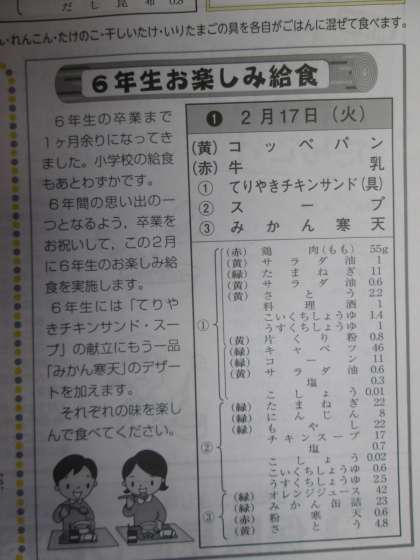 だし昆布 0.8
い・れんこん・たけのこ・干しいたけ・いりたまごの具を各自がごはんに混ぜて食べます。
6年生お楽しみ給食
6年生の卒業まで
1ヶ月余りになってき
ました。小学校の給食
もあとわずかです。
6年間の思い出の一
つとなるよう，卒業を
お祝いして，この2月
に6年生のお楽しみ給
食を実施します。
6年生には「てりや
きチキンサンド・スー
プ」の献立にもう一品
「みかん寒天」のデザー
トを加えます。
それぞれの味を楽し
んで食べてください。
❶ 2月17日（火）
(黄) コッペパン
(赤) 牛乳
① てりやきチキンサンド(具)
② スープ
③ みかん寒天
①
(赤) 鶏肉(もも) 55g
(黄) サラダ油 1
(緑) たまねぎ 11
(黄) サラダ油 0.6
(黄) さとう 2.2
料理酒 1
こいくちしょうゆ 1.4
うすくちしょうゆ 1
(黄) 片くり粉 0.8
(緑) キャベツ 46
(緑) コーン 11
(黄) サラダ油 0.6
塩 0.3
こしょう 0.01
②
(緑) たまねぎ 22
(緑) にんじん 8
(緑) もやし 22
チキンスープ 17
塩 0.7
こしょう 0.02
こいくちしょうゆ 0.6
うすくちしょうゆ 2.5
③
(緑) オレンジジュース 42
(緑) みかん缶詰 23
(赤) 粉寒天 0.6
(黄) さとう 4.8